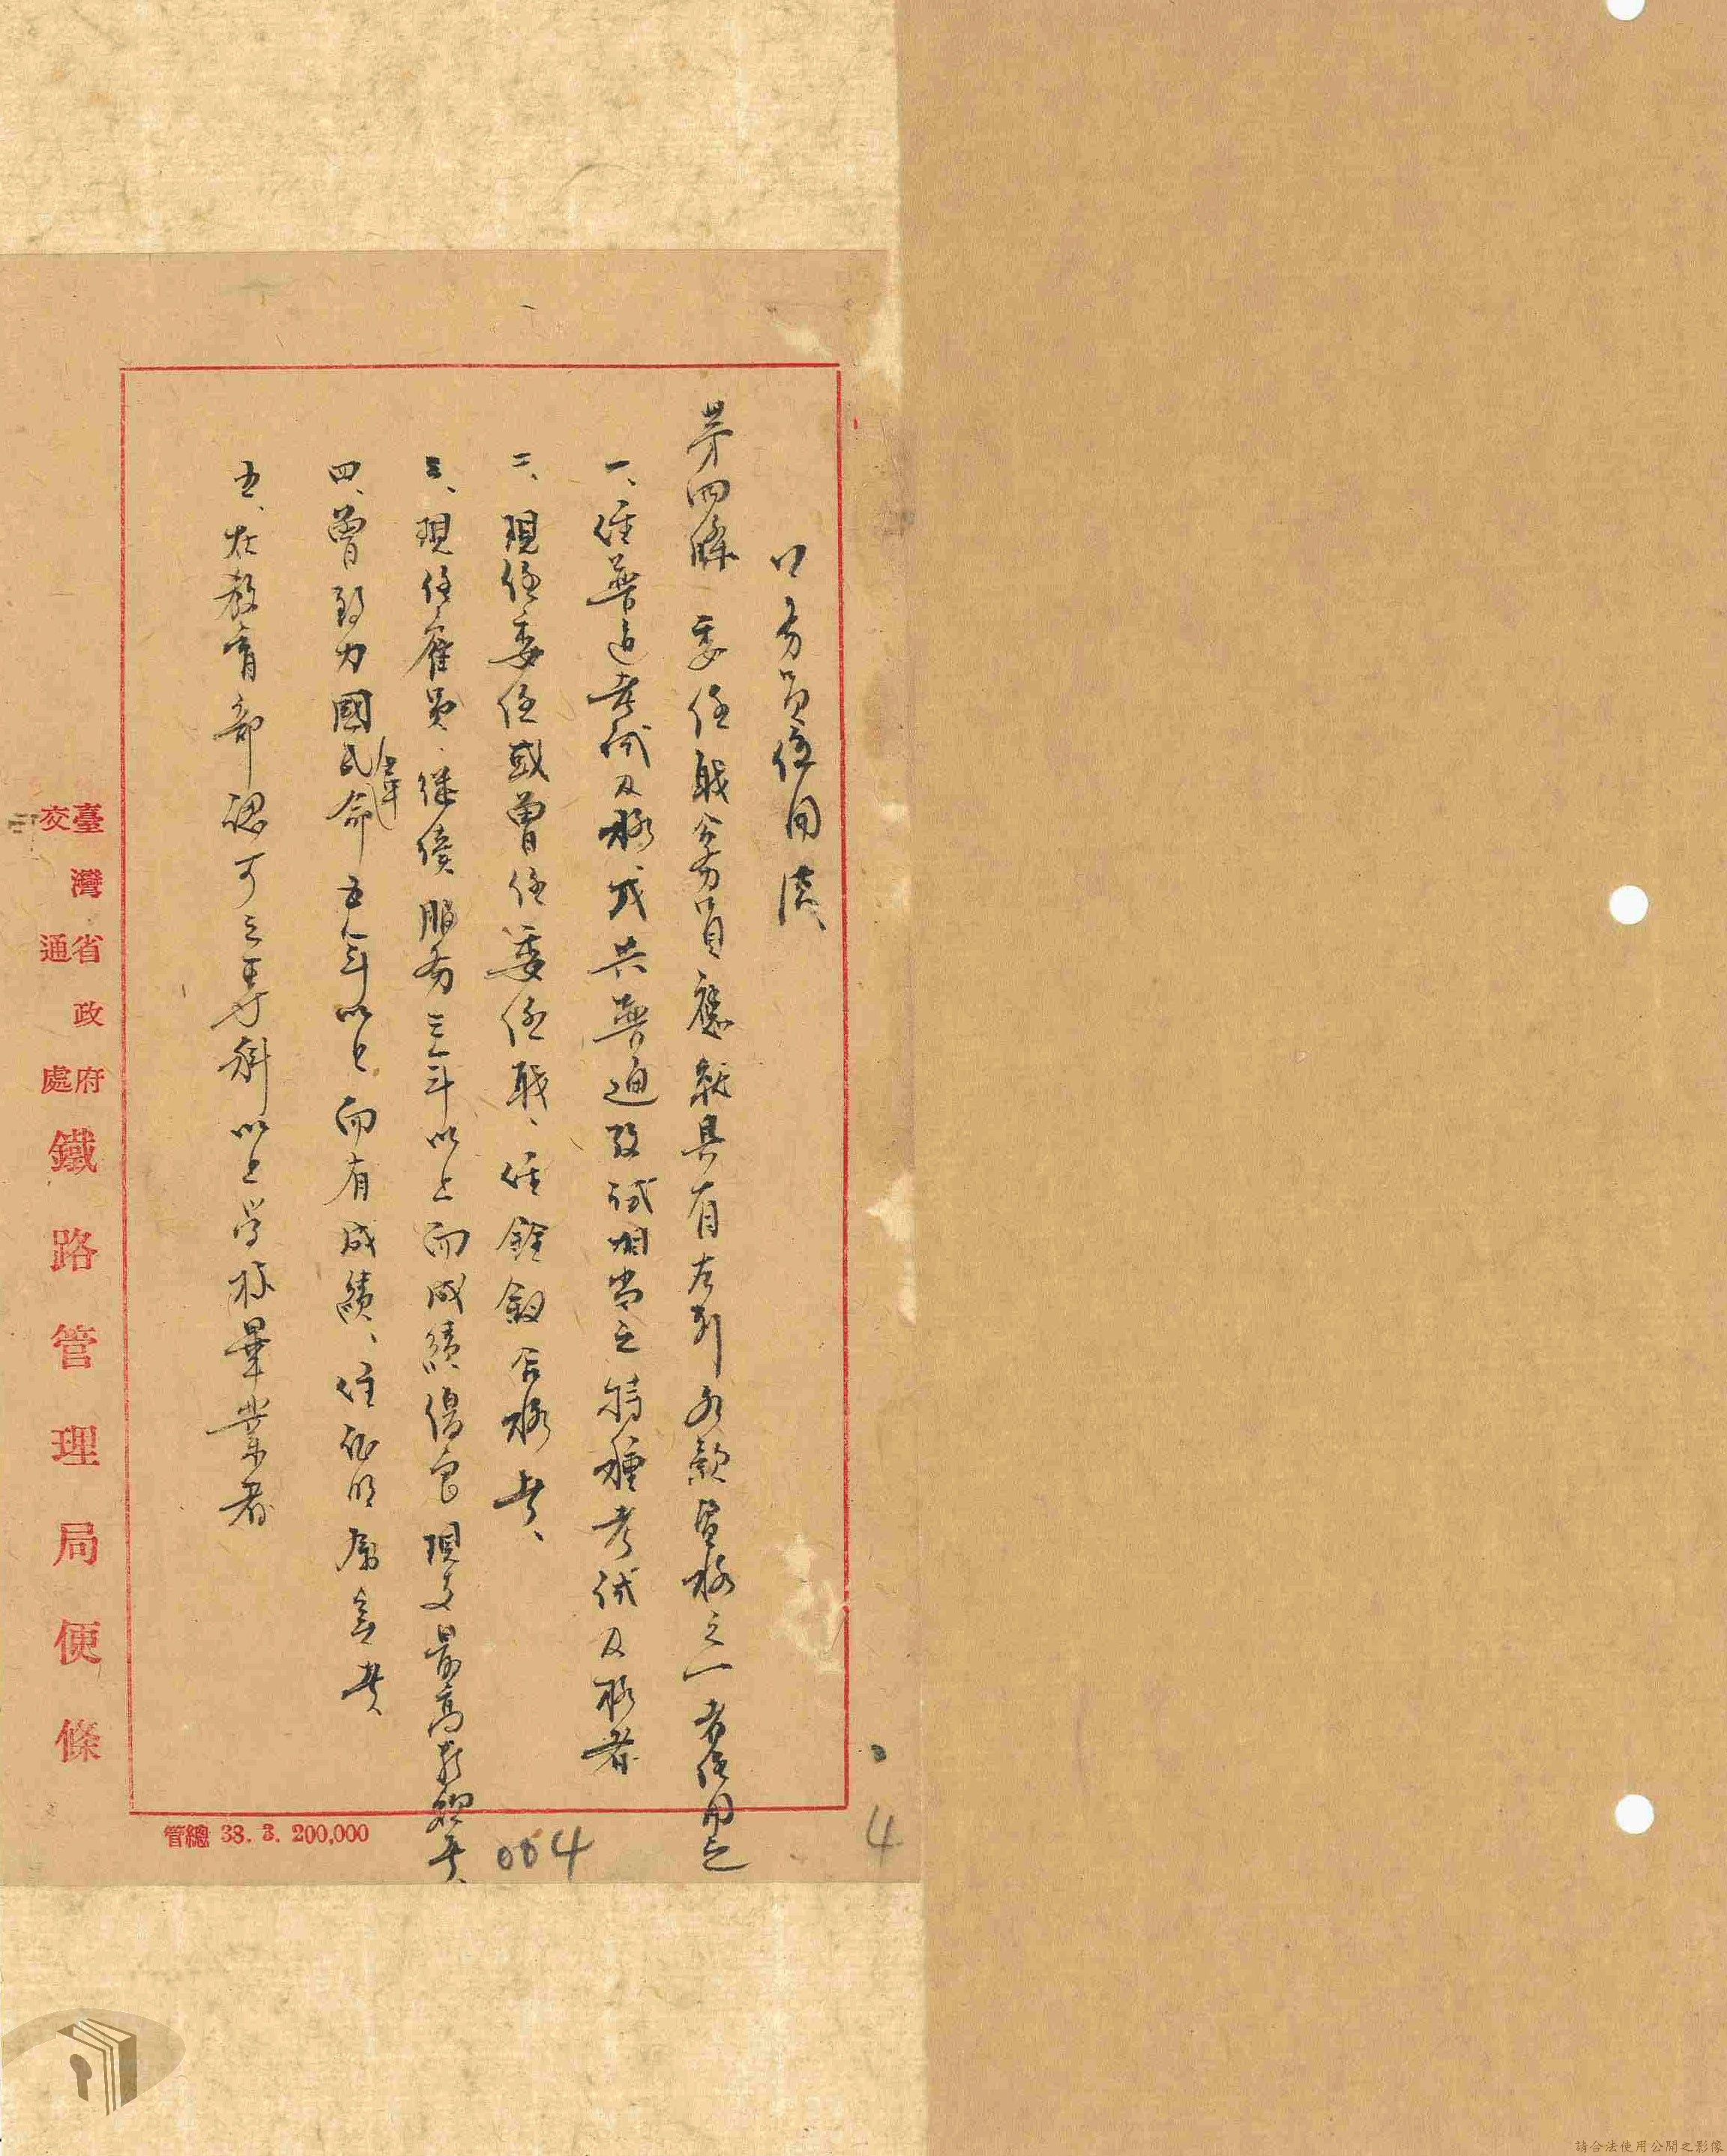 公務員任用法
第四條 委任職公務員應就具有左列各款資格之一者任用之
一、經普通考試及格或與普通攷試相當之特種考試及格者
二、現任委任或曾任委任職、經銓敘合格者、
三、現任雇員、繼續服務三年以上而成績優良現支最高薪額者、
四、曾致力國民革命五年以上而有成績、經證明屬實者
五、在教育部認可之專科以上学校畢業者
臺灣省政府
交通處
鐵路管理局便條
管總 38. 3. 200,000
004
4
請合法使用公開之影像